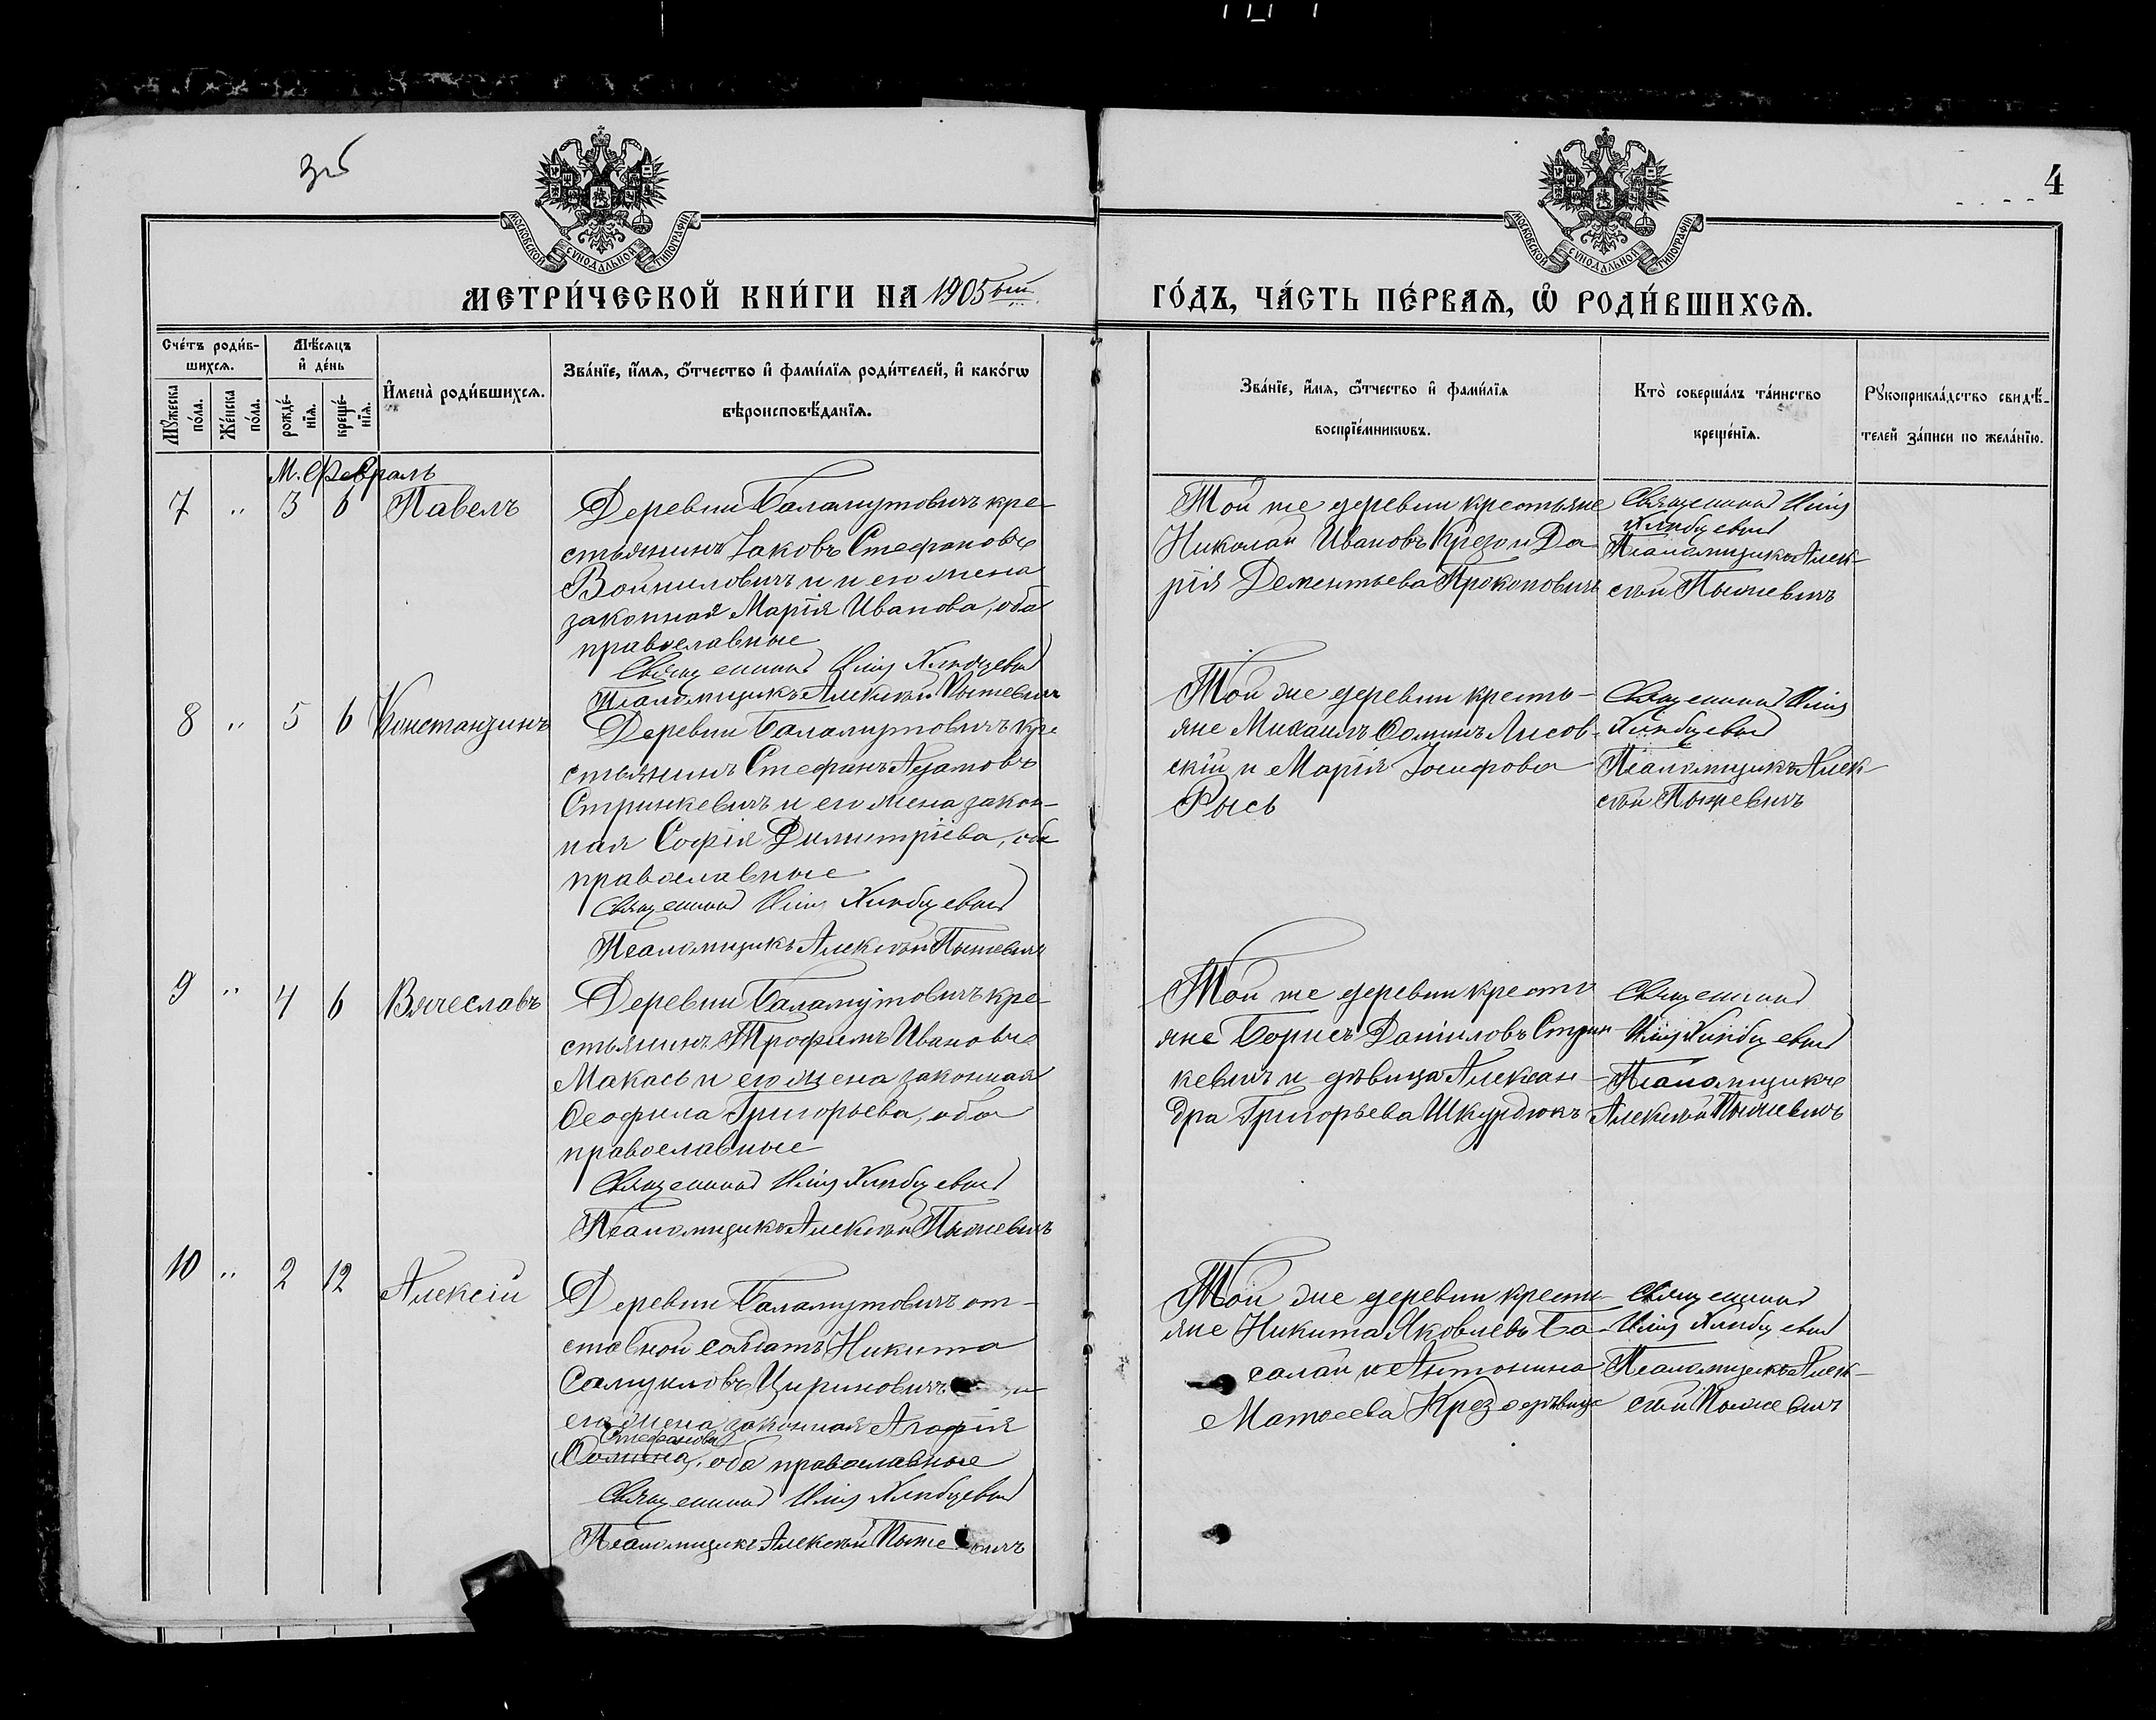 зб
4
МОСКОВСКОЙ СѴНОДАЛЬНОЙ ТИПОГРАФІИ
МОСКОВСКОЙ СѴНОДАЛЬНОЙ ТИПОГРАФІИ
МЕТРИ́ЧЕСКОЙ КНИ́ГИ НА 1905ый
ГО́ДЪ, ЧА́СТЬ ПЕ́РВАѦ, Ѡ҆ РОДИ́ВШИХСѦ.
Сче́тъ роди́в-
шихсѧ.
Мѣ́сѧцъ
и҆ де́нь
Мꙋ́жеска
по́ла.
Же́нска
по́ла.
рожде́-
нїѧ.
креще́-
нїѧ.
И҆мена̀ роди́вшихсѧ.
Зва́нїе, и҆́мѧ, ѻ҆́тчество и҆ фами́лїѧ роди́телей, и҆ како́гѡ
вѣроисповѣ́данїѧ.
Зва́нїе, и҆́мѧ, ѻ҆́тчество и҆ фами́лїѧ
воспрїе́мникѡвъ.
Кто̀ соверша́лъ та́инство
креще́нїѧ.
Рꙋкоприкла́дство свидѣ́-
телей за́писи по жела́нїю.
М. Февраль
7 " 3 6 Павелъ
Деревни Баламутовичъ кре-
стьянинъ Іаковъ Стефановъ
Войниловичъ и его жена
законная Марія Иванова, оба
православные
Священникъ Илія Хлѣбцевичъ
Псаломщикъ Алексѣй Пыжевичъ
Той же деревни крестьяне
Николай Ивановъ Крезо и Да-
рія Дементьева Прокоповичъ
Священникъ Илія
Хлѣбцевичъ
Псаломщикъ Алек-
сѣй Пыжевичъ
8 " 5 6 Константинъ
Деревни Баламутовичъ кре
стьянинъ Стефанъ Адамовъ
Стринкевичъ и его жена закон-
ная Софія Димитріева, оба
православные
Священникъ Илія Хлѣбцевичъ
Псаломщикъ Алексѣй Пыжевичъ
Той же деревни кресть-
яне Михаилъ Ѳоминъ Лисов-
скій и Марія Іосифова
Рысь
Священникъ Илія
Хлѣбцевичъ
Псаломщикъ Алек-
сѣй Пыжевичъ
9 " 4 6 Вячеславъ
Деревни Баламутовичъ кре-
стьянинъ Трофимъ Ивановъ
Макась и его жена законная
Ѳеофила Григорьева, оба
православные
Священникъ Илія Хлѣбцевичъ
Псаломщикъ Алексѣй Пыжевичъ
Той же деревни кресть
яне Борисъ Даніиловъ Стрин-
кевичъ и дѣвица Алексан-
дра Григорьева Шкурдюкъ
Священникъ
Илія Хлѣбцевичъ
Псаломщикъ
Алексѣй Пыжевичъ
10 " 2 12 Алексій
Деревни Баламутовичъ от-
ставной солдатъ Никита
Самуиловъ Цириновичъ и
его жена законная Агафія
Стефанова
Ѳомина, оба православные
Священникъ Илія Хлѣбцевичъ
Псаломщикъ Алексѣй Пыжевичъ
Той же деревни кресть-
яне Никита Яковлевъ Ба-
салай и Антонина
Матѳеева Крезо дѣвица
Священникъ
Илія Хлѣбцевичъ
Псаломщикъ Алек-
сѣй Пыжевичъ